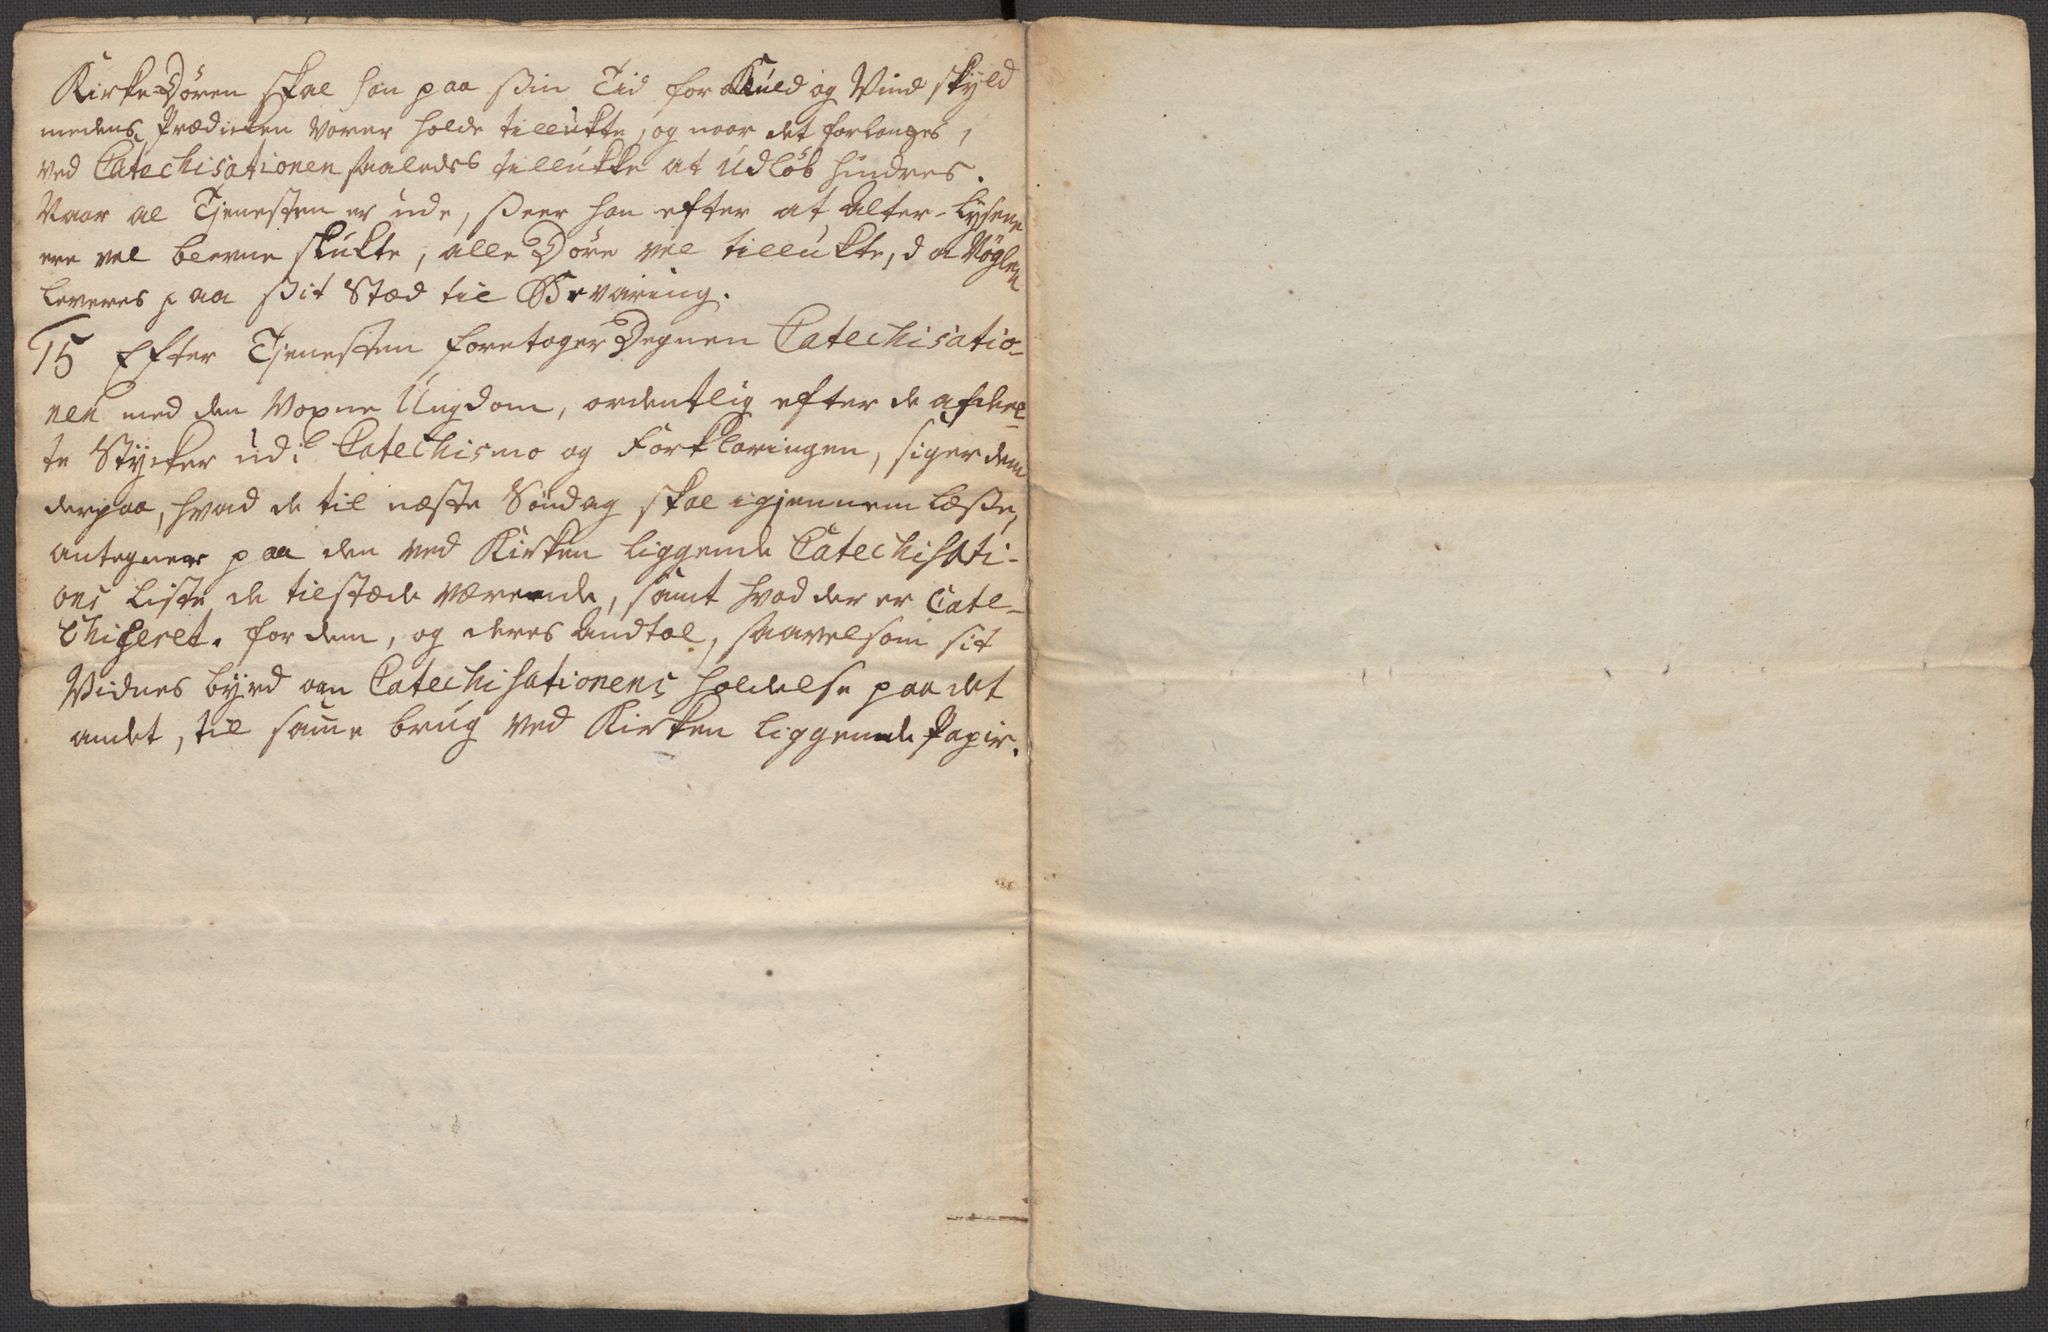 Kirke-Døren skal han paa ßin Tid for Kuld og Vind skyld
medens Prædicken varer holde tillukte, og naar det forlanges,
ved Catechisationen saaledes tillukke at Udløb hindres.
Naar al Tjenesten er ude, ßeer han efter at Alter-Lysene
ere vel blevne slukte, alle Døre vel tillukte, da Nøglen
leveres paa ßit Stæd til Bevaring.
15 Efter Tjenesten foretager Degnen Catechisatio-
nen med den Voxne Ungdom, ordentlig efter de afdeel-
te Stycker udi Catechismo og Forklaringen, siger dem
derpaa, hvad de til næste Søndag skal igjennem læße,
antegner paa den ved Kirken liggende Catechisati-
ons Liste de tilstæde værende, samt hvad der er Cate-
chiseret for dem, og deres Andtal, saavelsom sit
Vidnesbyrd om Catechisationens holdelse paa det
andet, til samme brug ved Kirken liggende Papir.